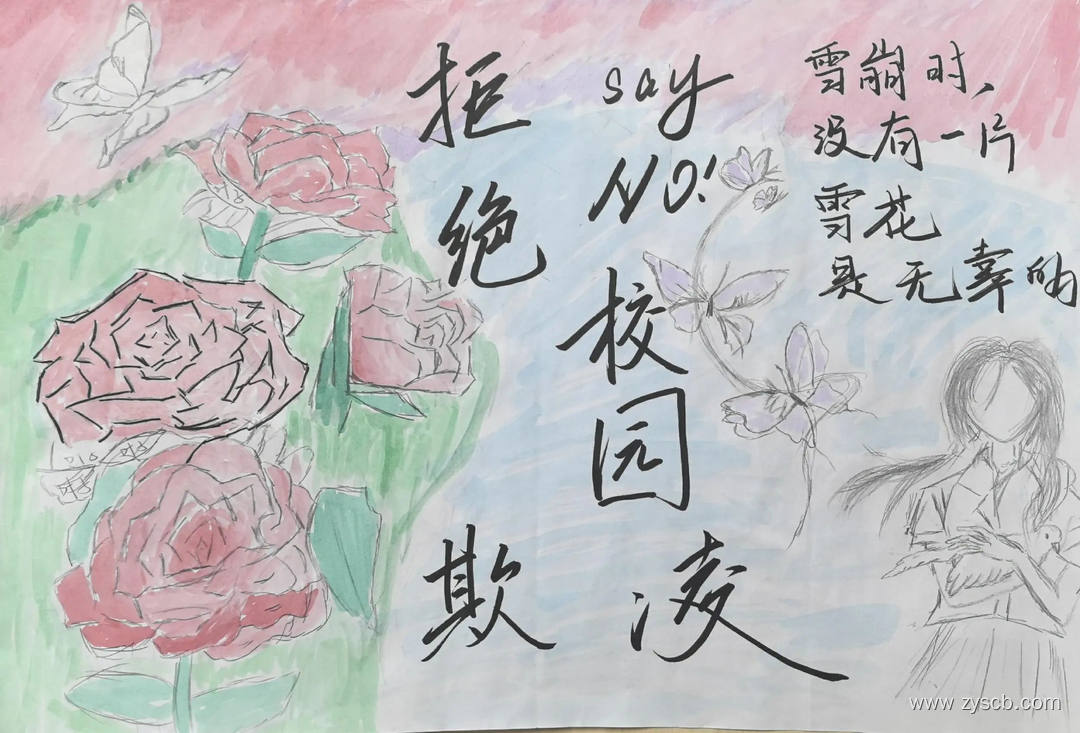 拒绝
say
NO!
校园
欺凌
雪崩时、
没有一片
雪花
是无辜的
www.zyscb.com